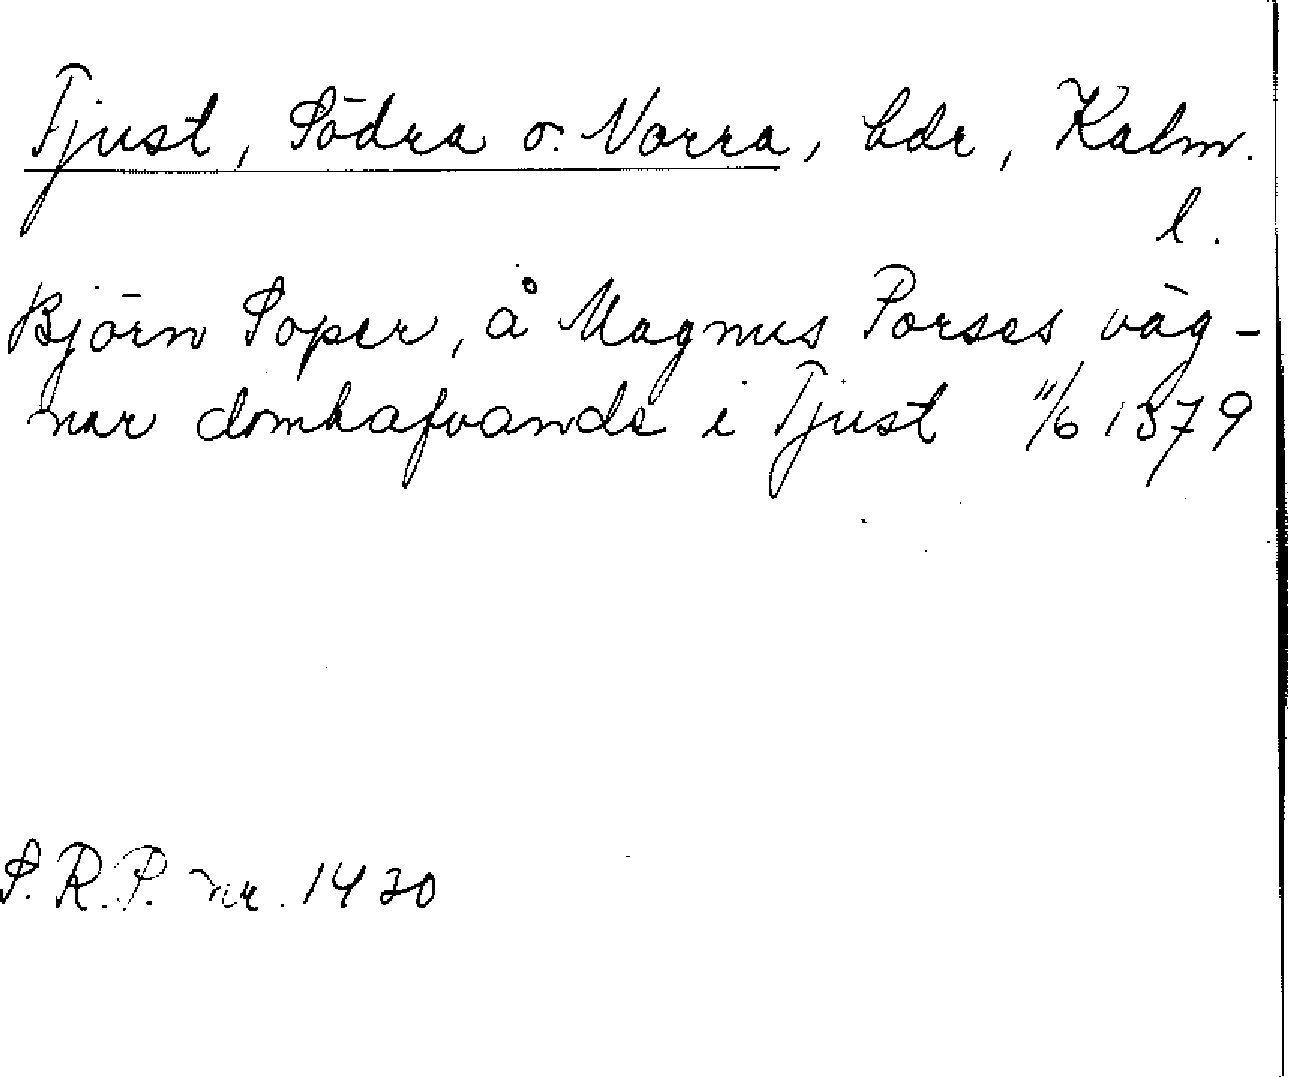 Tjust, Södra o. Norra, hdr, Kalm.
l.
Björn Soper, å Magnus Porses väg-
nar domhafvande i Tjust 11/6 1379
S.R.P. nr. 1430